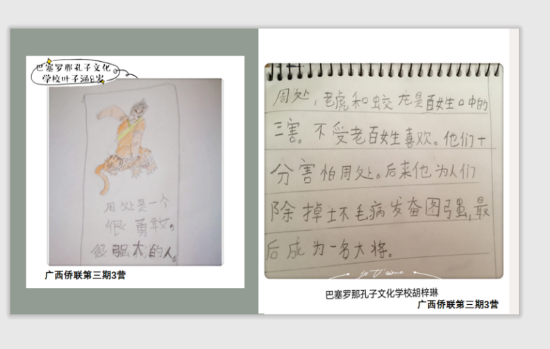 巴塞罗那孔子文化
学校叶子涵8岁
周处是一个
很勇敢。
很强大的人。
广西侨联第三期3营
周处，老虎和蛟龙是百姓口中的
三害。不受老百姓喜欢。他们十
分害怕周处。后来他为人们
除掉坏毛病发奋图强，最
后成为一名大将。
巴塞罗那孔子文化学校胡梓琳
广西侨联第三期3营